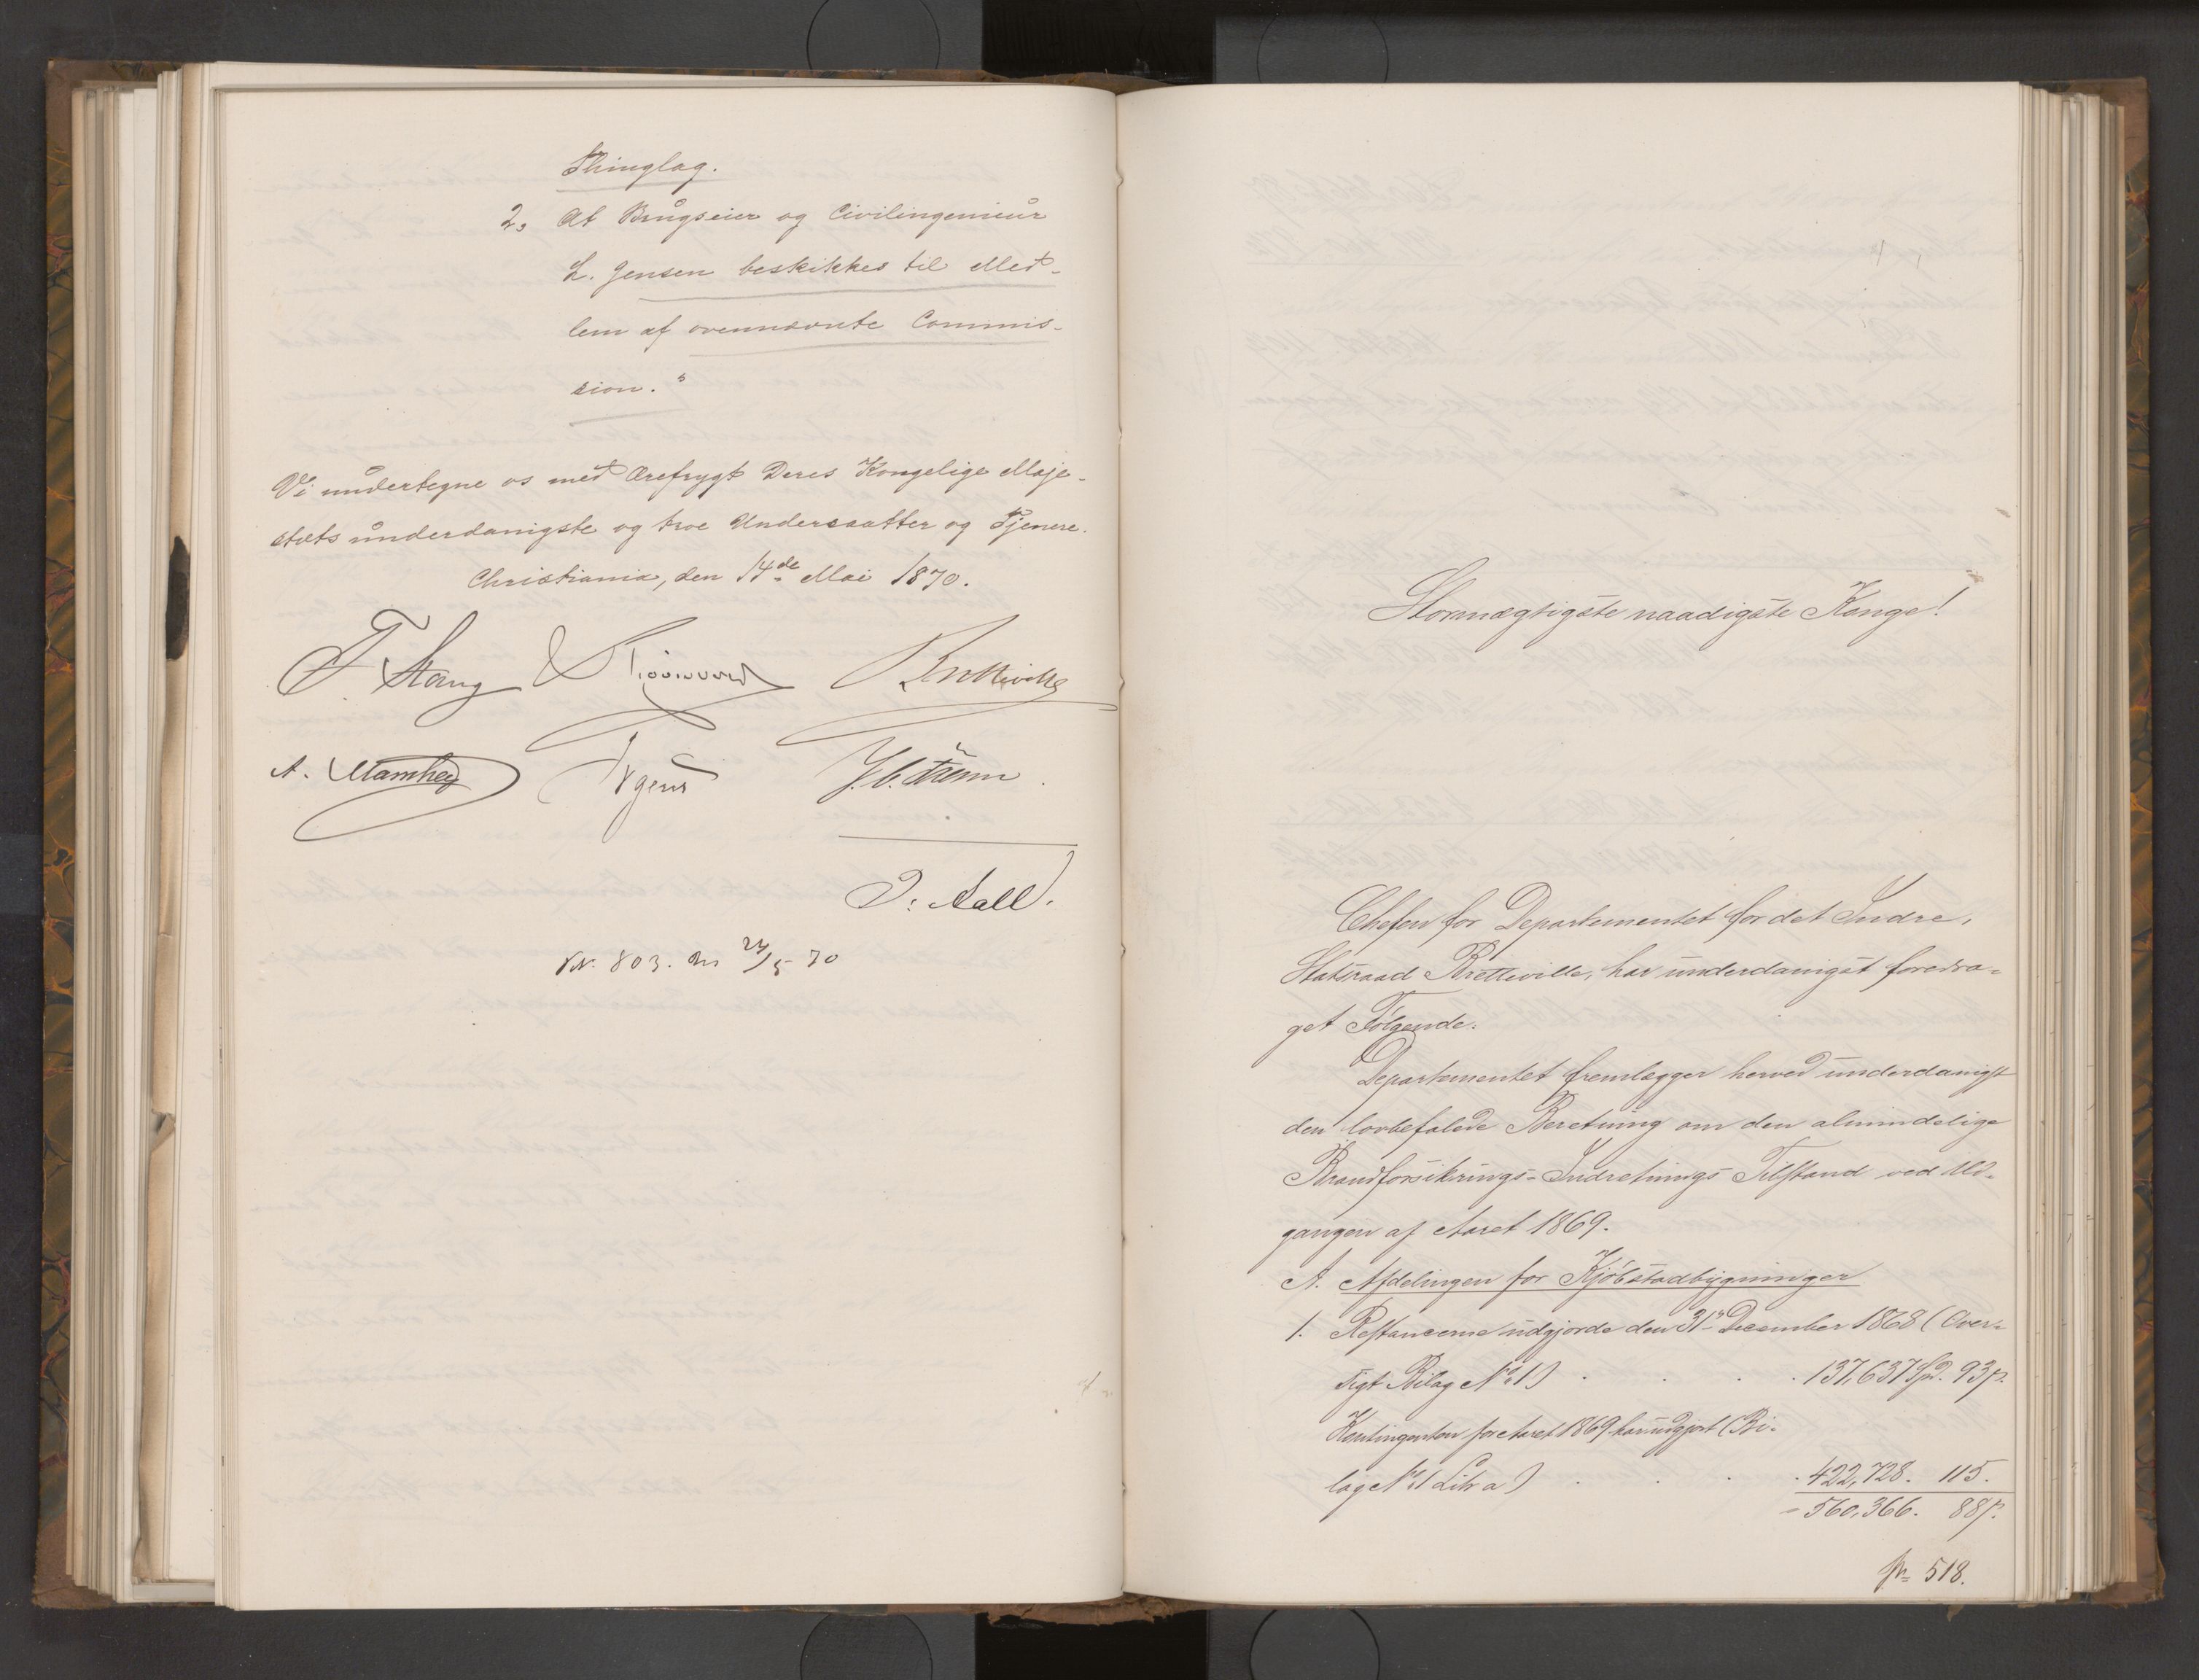 Thinglag.
2, At Brugseier og Civilingenieur
L. Jensen beskikkes til Med-
lem af ovennævnte Commis-
sion."
Vi undertegne os med Ærefrygt Deres Kongelige Maje-
stæts underdanigste og troe Undersaatter og Tjenere.
Christiania, den 14de Mai 1870.
F. Stang Bretteville
A. Manthey Irgens
J. Aall.
803. 24/5 70
Stormægtigste naadigste Konge!
Chefen for Departementet for det Indre,
Statsraad Bretteville, har underdanigst foredra-
get Følgende:
Departementet fremlægger herved underdanigst
den lovbefalede Beretning om den almindelige
Brandforsikrings-Indretnings Tilstand ved Ud-
gangen af Aaret 1869.
A. Afdelingen for Kjøbstadbygninger
1. Restancerne udgjorde den 31te December 1868 (Over-
sigt Bilag No 1) . . . . 137,637 Spd. 93 s.
Kontingenten for Aaret 1869 har udgjort (Bi-
lag No 1 Litr a) . . . . 422,728. 115.
- 560,366. 88 s.
518.